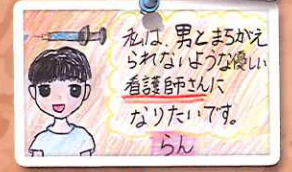 私は、男とまちがえ
られないような優しい
看護師さんに
なりたいです。
らん